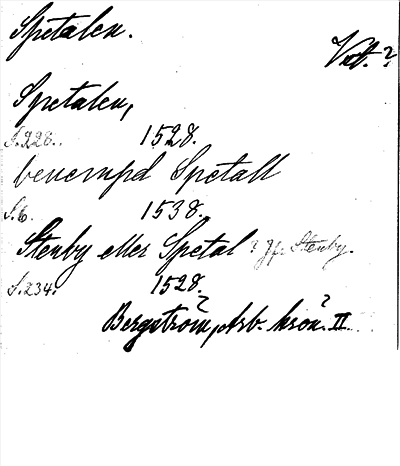 Spetalen.
Vet.?
Spetalen,
S. 228. 1528.
benempd Spetall
S. 6. 1538.
Stenby eller Spetal ? Jfr. Stenby.
S. 234. 1528.
Bergström, Arb. krön. II